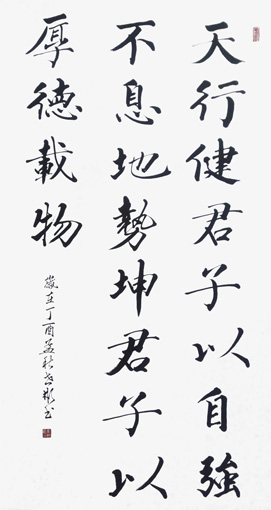 天行健君子以自強
不息地勢坤君子以
厚德載物
歲在丁酉孟秋